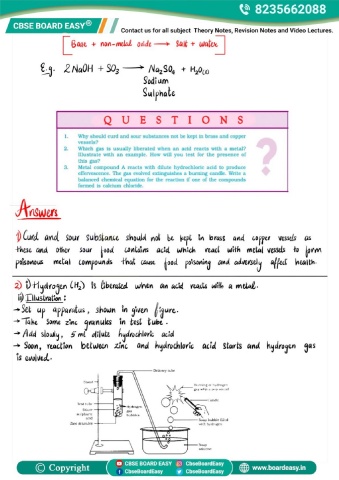 8235662088
CBSE BOARD EASY®
Contact us for all subject Theory Notes, Revision Notes and Video Lectures.
Base + non-metal oxide → Salt + water
E.g. 2NaOH + SO₃ → Na₂SO₄ + H₂O(l)
Sodium
Sulphate
QUESTIONS
1. Why should curd and sour substances not be kept in brass and copper
vessels?
2. Which gas is usually liberated when an acid reacts with a metal?
Illustrate with an example. How will you test for the presence of
this gas?
3. Metal compound A reacts with dilute hydrochloric acid to produce
effervescence. The gas evolved extinguishes a burning candle. Write a
balanced chemical equation for the reaction if one of the compounds
formed is calcium chloride.
?
Answers
1) Curd and sour substance should not be kept in brass and copper vessels as
these and other sour food contains acid which react with metal vessels to form
poisonous metal compounds that cause food poisoning and adversely affect health.
2) i) Hydrogen (H₂) is liberated when an acid reacts with a metal.
ii) Illustration:
→ Set up apparatus, shown in given figure.
→ Take some zinc granules in test tube.
→ Add slowly, 5 ml dilute hydrochloric acid
→ Soon, reaction between zinc and hydrochloric acid starts and hydrogen gas
is evolved.
Delivery tube
Burning of hydrogen
gas with a pop sound
Stand
Candle
Test tube
Hydrogen
gas
bubbles
Soap bubble filled
with hydrogen
Dilute
sulphuric
acid
Zinc granules
Soap
solution
© Copyright
CBSE BOARD EASY
CbseBoardEasy
CbseBoardEasy
CbseBoardEasy
www.boardeasy.in